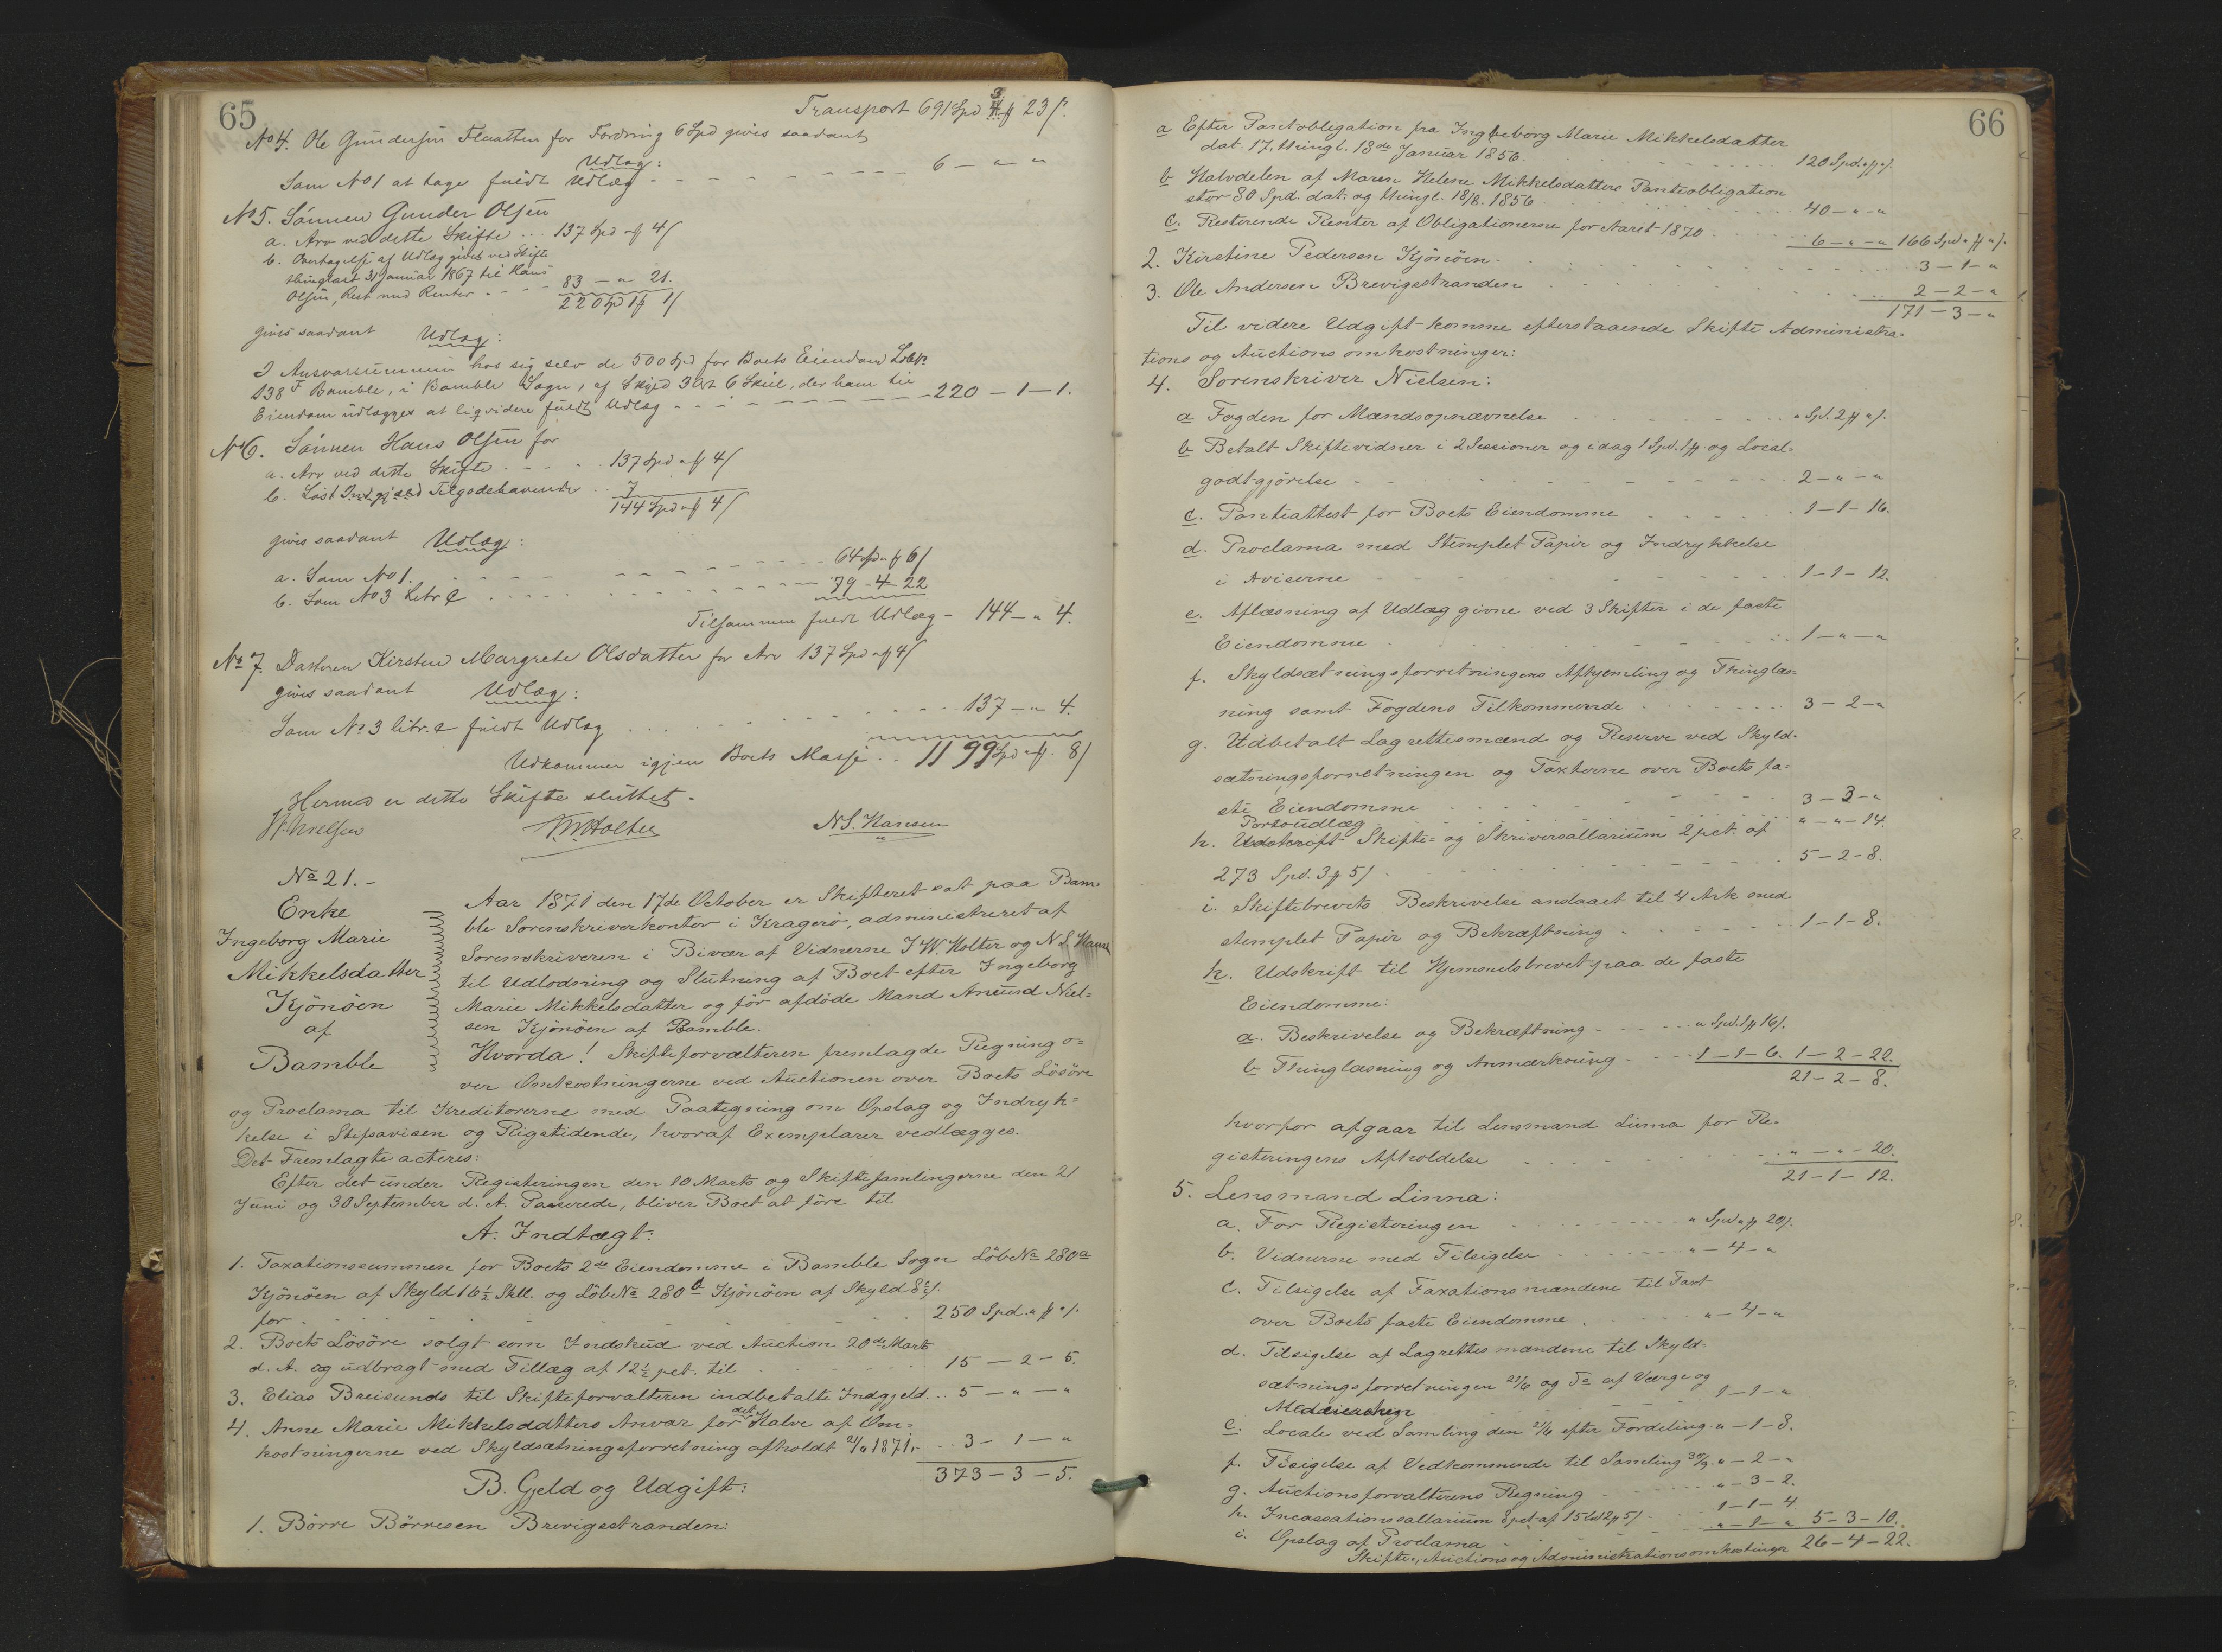 65
Transport 691 Spd 3 ff 23 /.
No 4. Ole Gundersen Flaatten for Fordring 6 Spd gives saadant
Udlæg:
Som No 1 at tage fuldt Udlæg - - - 6 - " "
No 5. Sønnen Gunder Olsen
a. Arv ved dette Skifte ... 137 Spd " ff 4 /
b. Overtagelse af Udlæg givet ved Skifte
thinglæst 31 Januar 1867 til Hans
Olsen, Rest med Renter - - - 83 - " 21.
220 Spd 1 ff 1 /
gives saadant Udlæg:
I Ansvarssummen hos sig selv de 500 Spd for Boets Eiendom Løbn
138 F Bamble, i Bamble Sogn, af Skyld 3 Ort 6 Skill, der ham til
Eiendom udlægges at liqvidere fuldt Udlæg - - - 220 - 1 - 1.
No 6. Sønnen Hans Olsen for
a. Arv ved dette Skifte - - - 137 Spd " ff 4 /
b. Løst Tilgodehavende .. 7
144 Spd " ff 4 /
gives saadant Udlæg:
a. Som No 1. - - - 64 Spd " ff 6 /
b. Som No 3 Litr c - - - 79 - 4 - 22
Tilsammen fuldt Udlæg - 144 - " 4.
No 7. Datteren Kirsten Margrete Olsdatter for Arv 137 Spd " ff 4 /
gives saadant Udlæg:
Som No 3 litr. c fuldt Udlæg - - - 137 - " 4.
Udkommer igjen Boets Masse .. 1199 Spd " ff. 8 /
Hermed er dette Skifte sluttet.
Nielsen Holter N S. Hansen
No 21. -
Enke
Ingeborg Marie
Mikkelsdatter
Kjönöen
af
Bamble
Aar 1871 den 17de October er Skifteret sat paa Bam-
ble Sorenskriverkontor i Kragerö, administreret af
Sorenskriveren i Bivær af Vidnerne J W. Holter og N S. Hansen
til Udlodning og Slutning af Boet efter Ingeborg
Marie Mikkelsdatter og för afdöde Mand Anund Niel-
sen Kjönöen af Bamble.
Hvorda! Skifteforvalteren fremlagde Regning o-
ver Omkostningerne ved Auctionen over Boets Lösöre
og Proclama til Kreditorerne med Paategning om Opslag og Indryk-
kelse i Stiftsavisen og Rigstidende, hvoraf Exemplarer vedlægges.
Det Fremlagte acteres:
Efter det under Registeringen den 10 Marts og Skiftesamlingerne den 21
Juni og 30 September d. A. Passerede, bliver Boet at före til
A. Indtægt:
1. Taxationssummen for Boets 2de Eiendomme i Bamble Sogn Löb No 280 a
Kjönöen af Skyld 16 ½ Skll. og Löb No 280 b Kjönöen af Skyld 8 ½ /.
for - - - 250 Spd. " ff " /.
2. Boets Lösöre solgt som Indskud ved Auction 20de Marts
d. A. og udbragt med Tillæg af 12 ½ pct. til - - - 15 - 2 - 5.
3. Elias Breisunds til Skifteforvalteren indbetalte Indgjeld ... 5 - " - "
4. Anne Marie Mikkelsdatters Ansvar for det Halve af Om-
kostningerne ved Skyldsætningsforretning afholdt 21/6 1871. ... 3 - 1 - "
373 - 3 - 5.
B. Gjeld og Udgift:
1. Börre Börresen Brevigsstranden:
66
a Efter Pantobligation fra Ingeborg Marie Mikkelsdatter
dat. 17, thingl. 18de Januar 1856. - - - 120 Spd. " ff " /.
b Halvdelen af Maren Helene Mikkelsdatters Panteobligation
stor 80 Spd. dat. og thingl. 18/8. 1856 - - - 40 - " - "
c. Resterende Renter af Obligationerne for Aaret 1870 - - - 6 - " - " 166 Spd " ff " /.
2. Kirstine Pedersen Kjönöen - - - 3 - 1 - "
3. Ole Andersen Brevigsstranden - - - 2 - 2 - "
171 - 3 - "
Til videre Udgift komme efterstaaende Skifte Administra-
tions og Auctions omkostninger:
4. Sorenskriver Nielsen:
a Fogden for Mændsopnævnelse - - - " Spd. 2 ff " /.
b Betalt Skiftevidner i 2 Sessioner og idag 1 Spd. 1 ff. og Local-
godtgjörelse - - - 2 - " - "
c. Panteattest for Boets Eiendomme - - - 1 - 1 - 16.
d. Proclama med Stemplet Papir og Indrykkelse
i Aviserne - - - 1 - 1 - 12.
e. Aflæsning af Udlæg givne ved 3 Skifter i de faste
Eiendomme - - - 1 - " - "
f. Skyldsætningsforretningens Afhjemling og Thinglæs-
ning samt Fogdens Tilkommende - - - 3 - 2 - "
g. Udbetalt Lagrettesmænd og Reserve ved Skyld-
sætningsforretningen og Taxterne over Boets fa-
ste Eiendomme - - - 3 - 3 - "
Portoudlæg - - - " - " - 14.
h. Udskrift Skifte- og Skriversallarium 2 pct. af
273 Spd. 3 ff 5 / - - - 5 - 2 - 8.
i. Skiftebrevets Beskrivelse anslaaet til 4 Ark med
stemplet Papir og Bekræftning - - - 1 - 1 - 8.
k. Udskrift til Hjemmelsbrevet paa de faste
Eiendomme:
a. Beskrivelse og Bekræftning - - - " Spd. 1 ff 16 /.
b Thinglæsning og Anmærkning - - - 1 - 1 - 6. 1 - 2 - 22.
21 - 2 - 8.
hvorfor afgaar til Lensmand Linna for Re-
gisteringens Afholdelse - - - " - " - 20.
21 - 1 - 12.
5. Lensmand Linna:
a. For Registeringen - - - " Spd " ff 20 /.
b. Vidnerne med Tilsigelse - - - " - 4 - "
c. Tilsigelse af Taxationsmændene til Taxt
over Boets faste Eiendomme - - - " - 4 - "
d. Tilsigelse af Lagrettesmændene til Skyld-
sætningsforretningen 21/6 og Do af Værge og
Meddeiersken - - - 1 - 1 - "
e. Locale ved Samling den 21/6 efter Fordeling. " - 1 - 8.
f. Tilsigelse af Vedkommende til Samling 30/9 " - 2 - "
g. Auctionsforvalterens Regning - - - " - 3 - 2.
h. Incassationssallarium 8 pct af 15 Spd 2 ff 5 / - 1 - 1 - 4
i. Opslag af Proclama - - - " - 1 - " 5 - 3 - 10.
Skifte-, Auctions og Administrationsomkostninger 26 - 4 - 22.